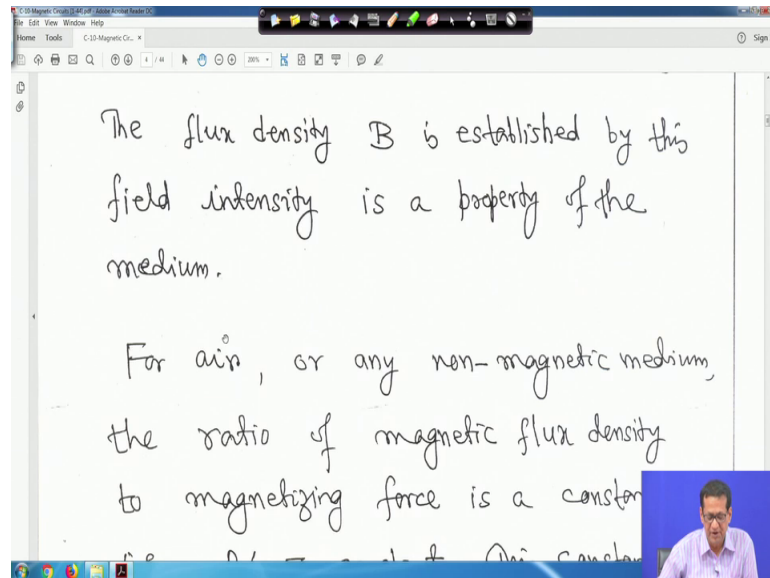 C-10-Magnetic Circuits [1-44].pdf - Adobe Acrobat Reader DC
File Edit View Window Help
Home Tools C-10-Magnetic Cir... × Sign
4 / 44 200%
The flux density B is established by this
field intensity is a property of the
medium.
For air, or any non-magnetic medium,
the ratio of magnetic flux density
to magnetizing force is a constan